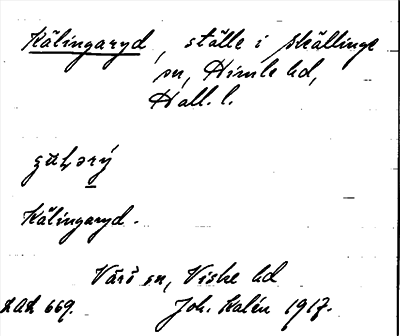 Kälingaryd, ställe i Skällinge
sn, Himle hd,
Hall. l.
Kälingaryd.
Värö sn, Viske hd
669. Joh. Kalén 1917.